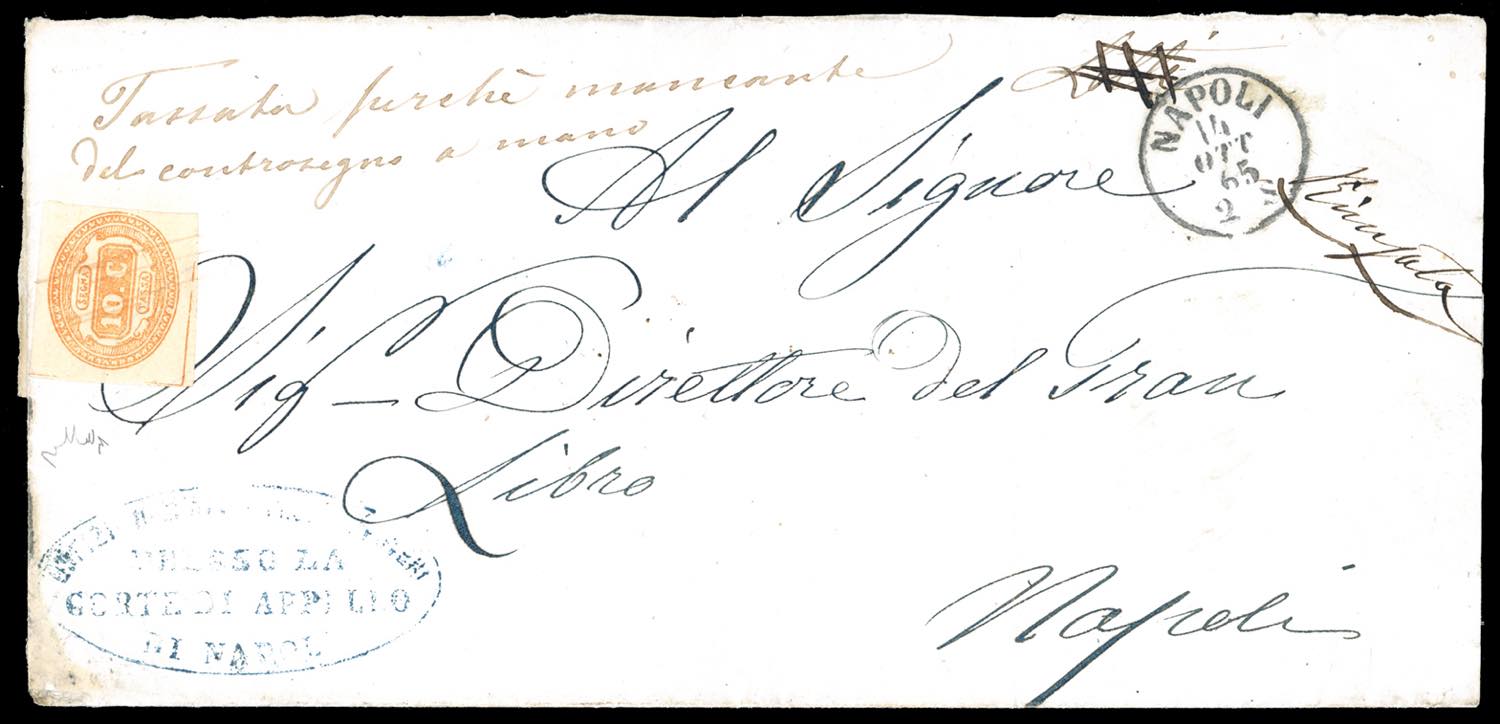 Tassata perchè mancante
del controsegno a mano
NAPOLI
14
OTT
65
2
Al Signore
10. C.
SEGNA
TASSA
Sig – Direttore del Gran
Libro
PRESSO LA
CORTE DI APPELLO
DI NAPOLI
Napoli